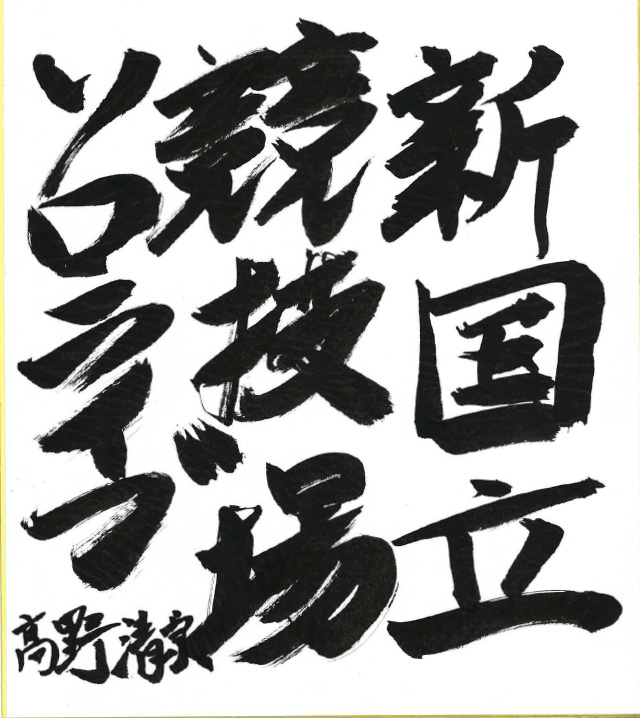 新国立
競技場
ソロライブ
高野清宗